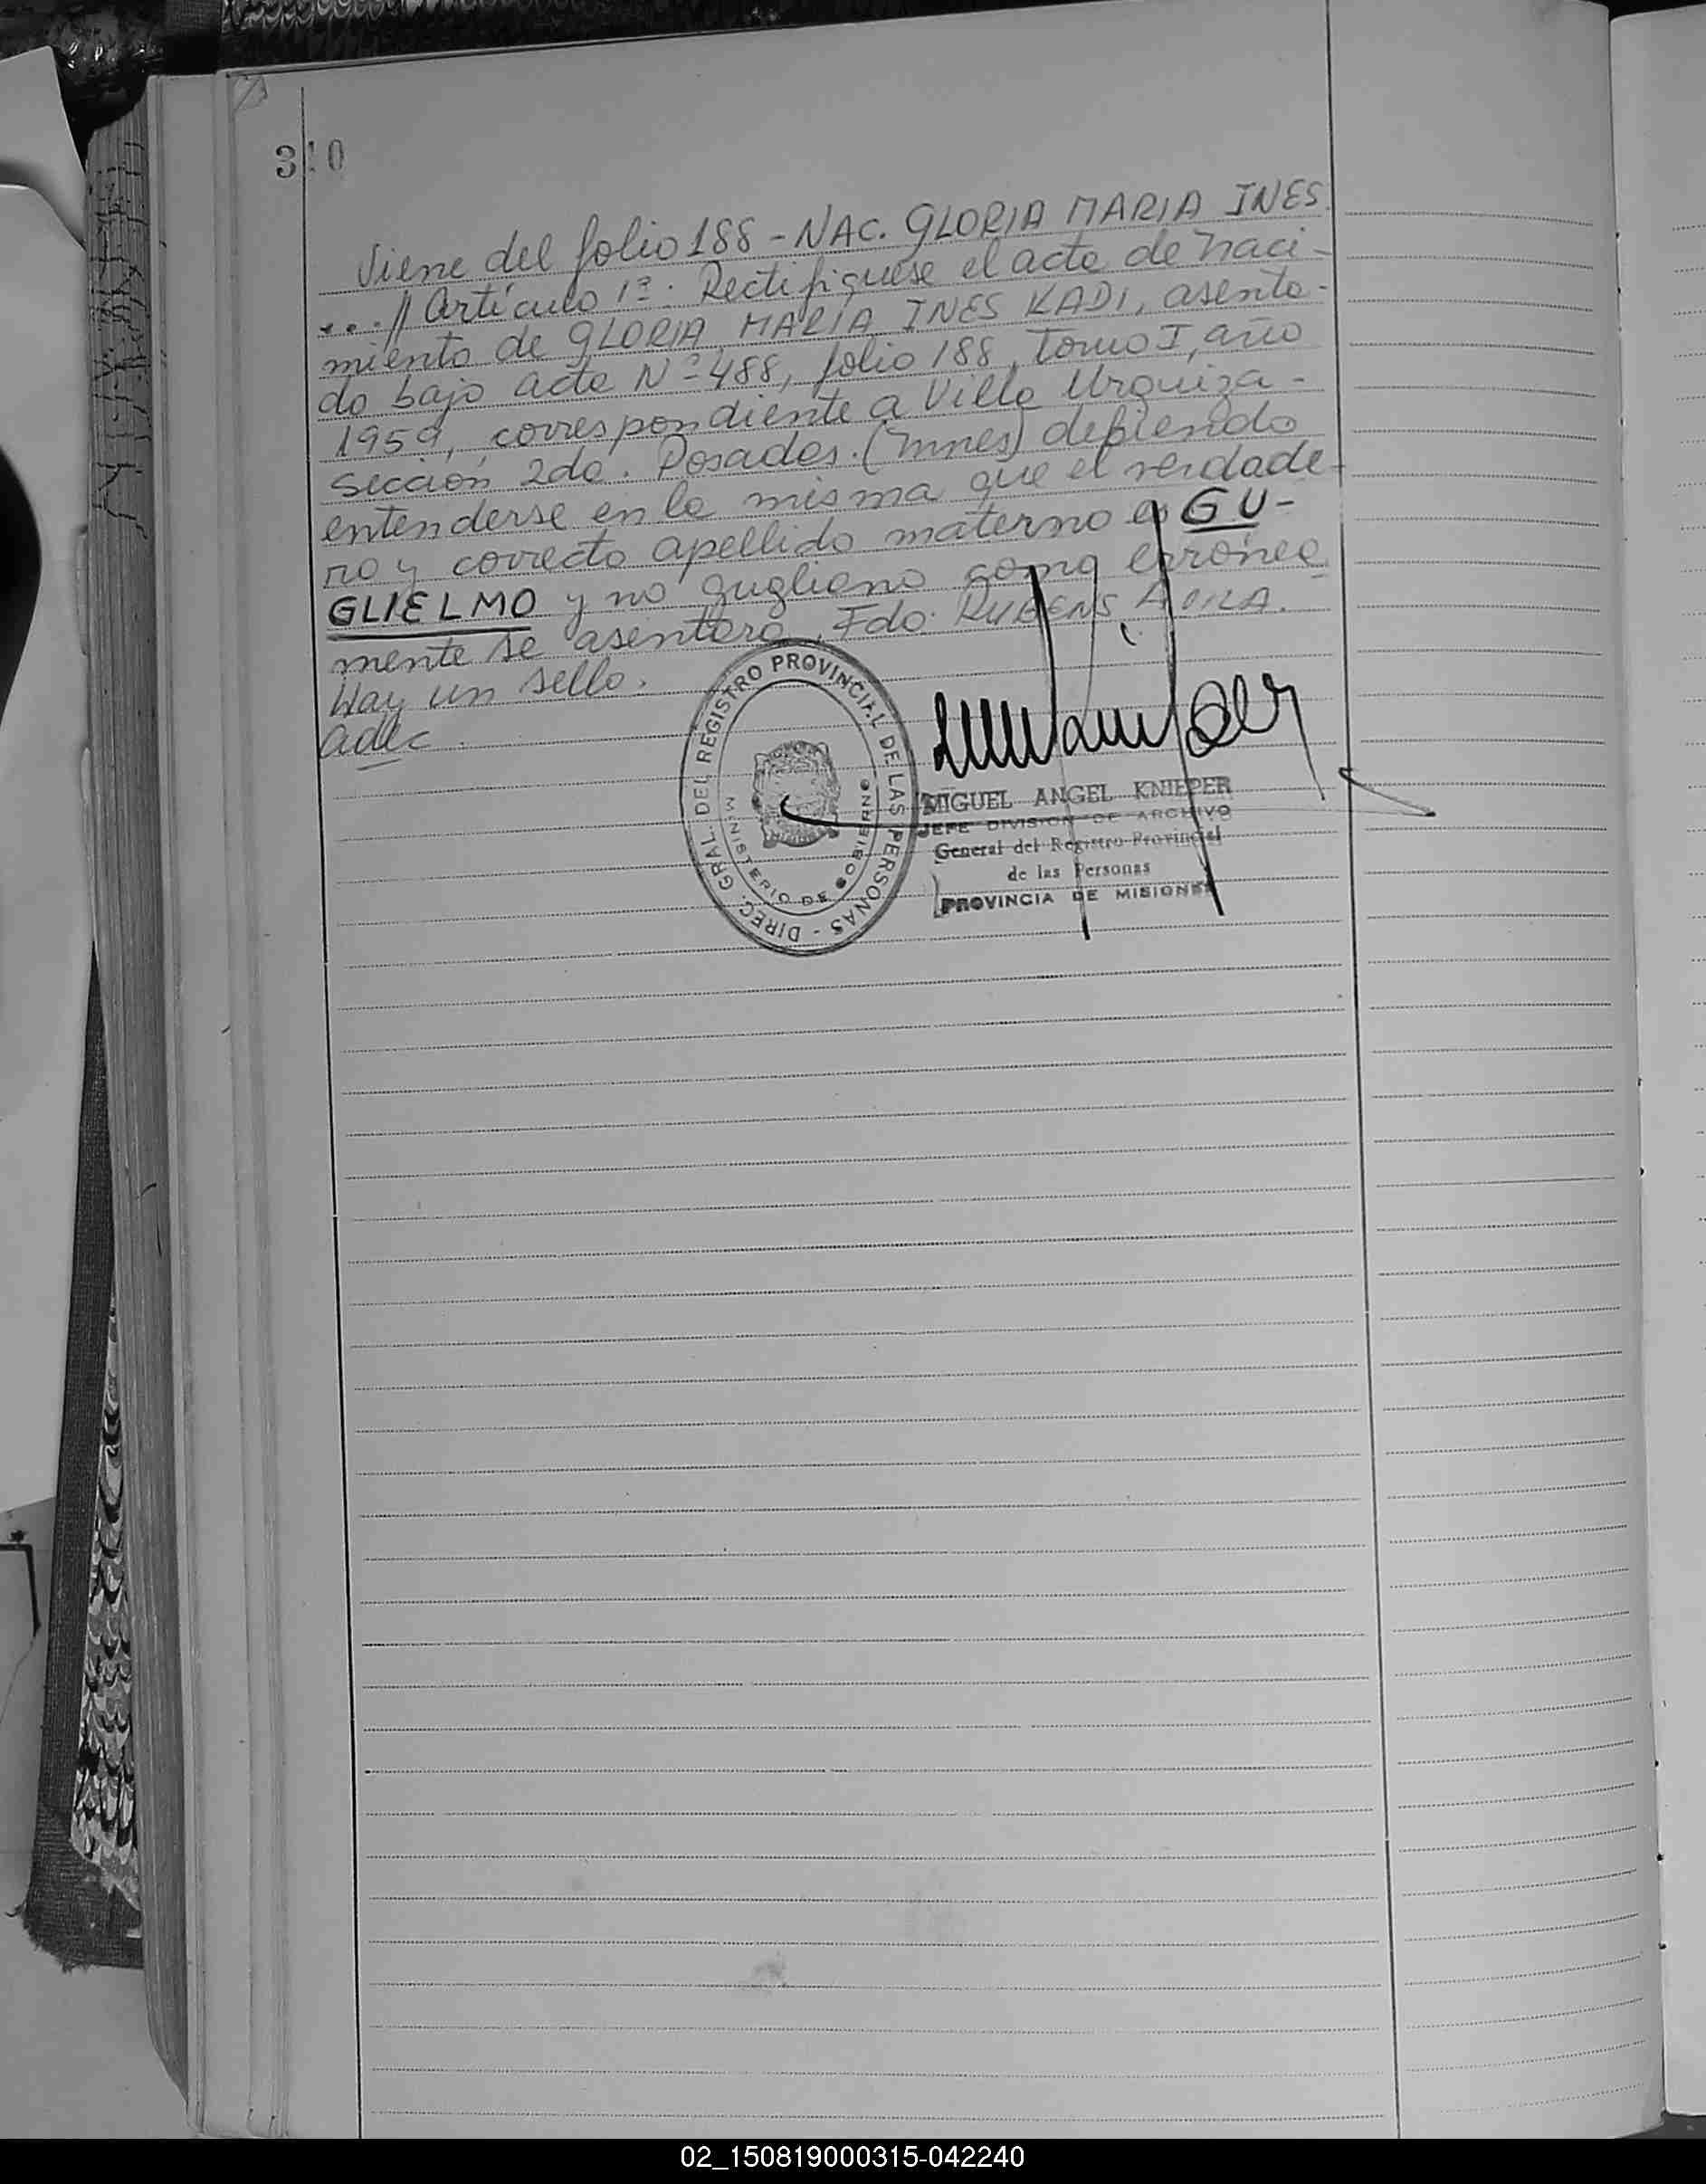 310
Viene del folio 188 - NAC. GLORIA MARIA INES.
...// Artículo 1º: Rectifiquese el acta de naci-
miento de GLORIA MARIA INES KADI, asenta-
do bajo acta Nº 488, folio 188, tomo I, año
1959, correspondiente a Villa Urquiza -
Sección 2da. Posadas. (Mnes) debiendo
entenderse en la misma que el verdade-
ro y correcto apellido materno es GU-
GLIELMO y no gugliono como erronea
mente se asentara. Fdo: RUBENS
Hay un sello.
adec.
DIREC. GRAL. DEL REGISTRO PROVINCIAL DE LAS PERSONAS -
MINISTERIO DE GOBIERNO
MIGUEL ANGEL KNIEPER
JEFE DIVISION DE ARCHIVO
General del Registro Provincial
de las Personas
PROVINCIA DE MISIONES
02_150819000315-042240